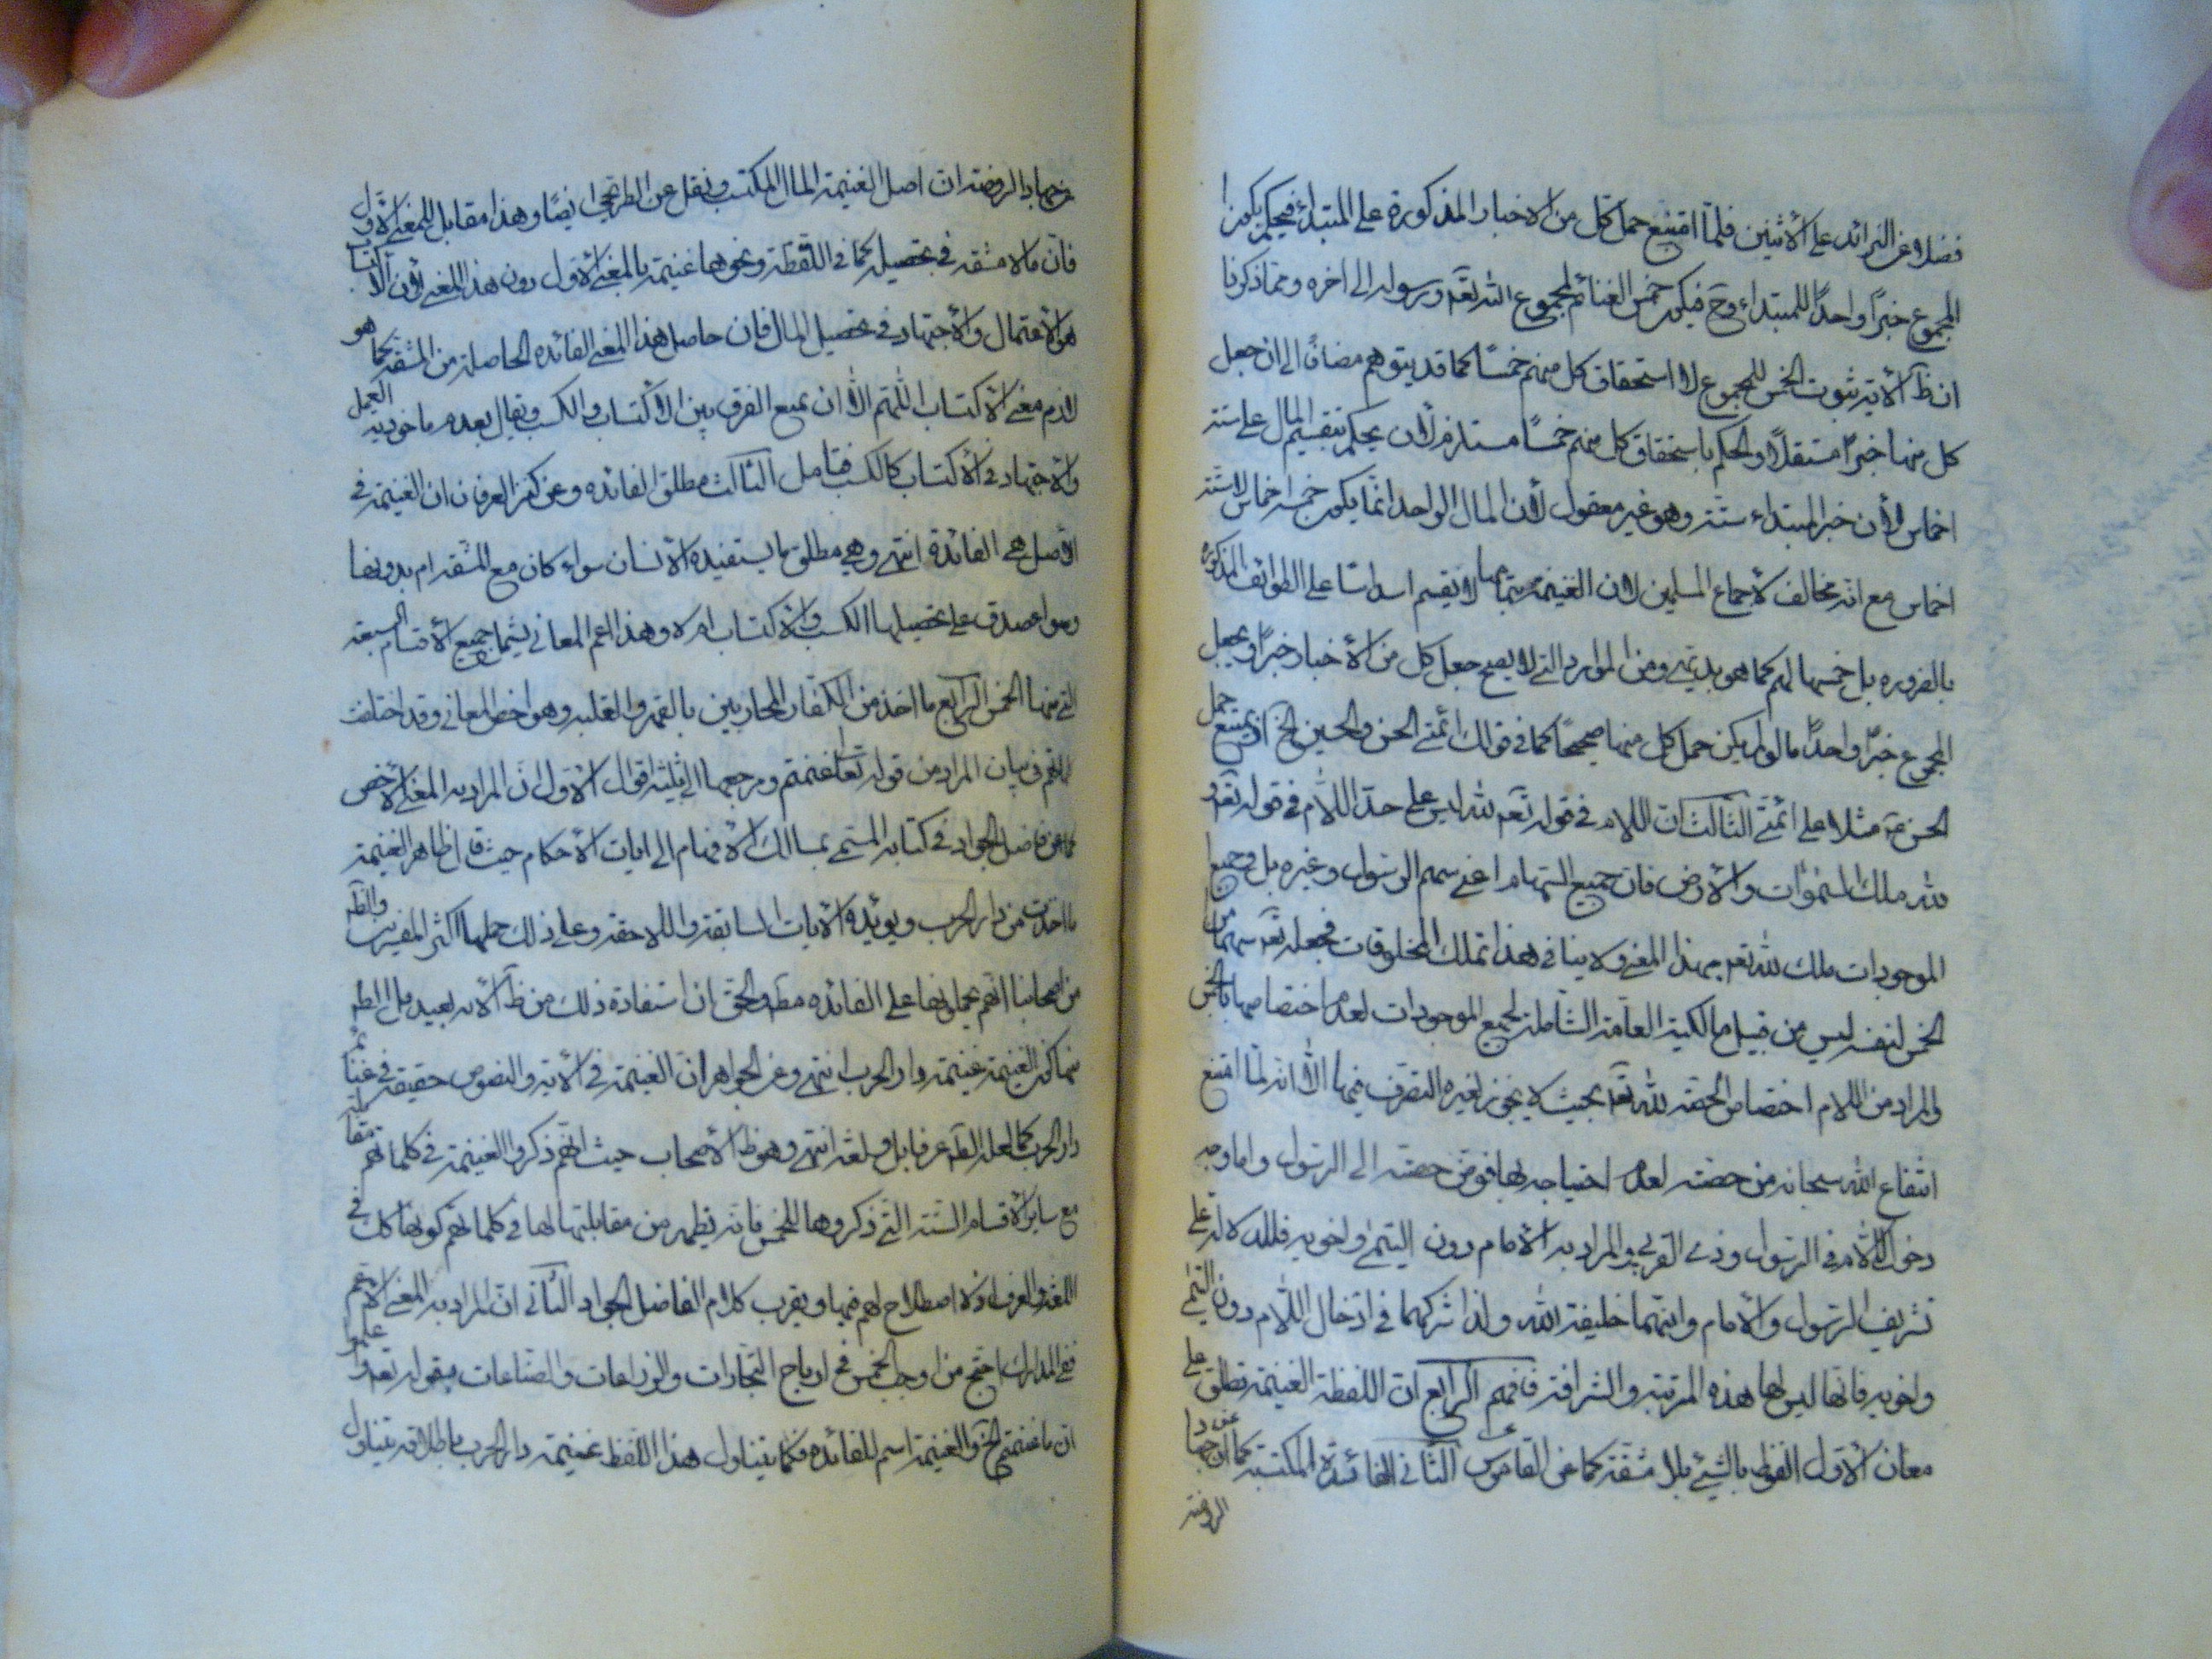 فضلا عن الزائد على الاثنين فلما امتنع حمل كل من الاخبار المذكورة على المبتداء فيحكم بكون
المجموع خبرًا واحدًا للمبتداء وح فيكون خمس الغنائم لمجموع الله تعه ورسوله الى اخره ومما ذكرنا
ان ظ الاية ثبوت الخمس للمجموع لا استحقاق كل منهم خمسًا كما قد يتوهم مضافًا الى ان جعل
كل منها خبرًا مستقلًا والحكم باستحقاق كل منهم خمسًا مستلزم لان يحكم بتقسيم المال على ستة
اخماس لأن خبر المبتداء ستة وهو غير معقول لأن المال الواحد انما يكون خمسة اخماس لا ستة
اخماس مع انه مخالف لاجماع المسلمين لان الغنيمة بتمامها لا يقسم اسداسًا على الطوائف المذكورة
بالضروره بل خمسها لهم كما هو بديهى ومن الموارد التى لا يصح جعل كل من الاخبار خبرًا ويجعل
المجموع خبرًا واحدًا ما لو لم يكن حمل كل منها صحيحًا كما فى قولك ائمتى الحسن والحسين الخ اذ يمتنع حمل
الحسن عه مثلا على ائمتى الثالث ان اللام فى قوله تعه لله ليس على حد اللام فى قوله تعه و
لله ملك السموات والارض فان جميع السهام اعنى سهم الرسول وغيره بل وجميع
الموجودات ملك لله تعه بهذا المعنى ولا ينافى هذا تملك المخلوقات فجعله تعه سهمًا من
الخمس لنفسه ليس من قبيل مالكية العامة الشاملة لجميع الموجودات لعدم اختصاصها بالخمس
والمراد من اللام اختصاص الحصة لله تعه بحيث لا يجوز لغيره التصرف فيها الا انه لما امتنع
انتفاع الله سبحانه من حصته لعدم احتياجه بها فوض حصته الى الرسول واما وجه
دخول اللام فى الرسول وذى القربى والمراد به الامام دون اليتمى واخويه فللدلالة على
تشريف الرسول والامام وانهما خليفة الله ولذا شركهما فى ادخال اللام دون اليتمى
واخويه فانها ليس لها هذه المرتبه والشرافة فافهم الرابع ان اللفظة الغنيمة تطلق على
معان الاول الفوز بالشئ بلا مشقة كما عن القاموس الثانى الفائدة المكتسبة كما عن جهاد
الروضه
الروضة ان اصل الغنيمة المال المكتسب ونقل عن الطريحى ايضًا وهذا مقابل للمعنى الاول
فان ما لا مشقه فى تحصيله كما فى اللقطة ونحوها غنيمة بالمعنى الاول دون هذا المعنى لأن الاكتساب
هو الاعتمال والاجتهاد فى تحصيل المال فان حاصل هذا المعنى الفائده الحاصلة من المشقه كما هو
لازم معنى الاكتساب اللهم الا ان يمنع الفرق بين الاكتساب والكسب ويقال بعدم ماخوذيه العمل
والاجتهاد فى الاكتساب كالكسب فتامل الثالث مطلق الفائده وعن كنز العرفان ان الغنيمة فى
الاصل هى الفائدة انتهى وهى مطلق ما يستفيده الانسان سواء كان مع المشقه ام بدونها
وسواء صدق على تحصيلها الكسب والاكتساب ام لا وهذا اعم المعانى يشمل جميع الاقسام السبعه
التى فيها الخمس الرابع ما اخذ من الكفار المحاربين بالقهر والغلبه وهو اخص المعانى وقد اختلفت
فى بيان المراد من قوله تعالى غنمتم ومرجعها الى ثلثه اقوال الاول ان المراد به المعنى الاخص
كما عن فاضل الجواد فى كتابه المسمى بمسالك الافهام الى ايات الاحكام حيث قال ظاهر الغنيمة
ما اخذت من دار الحرب ويؤيده الايات السابقة واللاحقه وعلى ذلك حملها اكثر المفسرين والظ
من اصحابنا انهم يحملونها على الفائده مطه والحق ان استفادة ذلك من ظ الاية بعيد بل الظ
منها كون الغنيمة غنيمة دار الحرب انتهى وعن الجواهر ان الغنيمة فى الاية والنصوص حقيقه فى غنائم
دار الحرب كما لعله الظ عرفا بل ولغه انتهى وهو ظ الاصحاب حيث انهم ذكروا الغنيمة فى كلماتهم مقابله
مع ساير الاقسام الستة التى ذكروها للخمس فانه يظهر من مقابلتها لها فى كلماتهم كونها كك فى
اللغة والعرف اذ لا اصطلاح لهم فيها ويقرب كلام الفاضل الجواد الثانى ان المراد به المعنى الاعم
ففى المدارك احتج من اوجب الخمس فى ارباح التجارات والزراعات والصناعات بقوله تعه واعلموا
ان ما غنمتم الخ والغنيمة اسم للفائده فكما يتناول هذا اللفظ غنيمة دار الحرب باطلاقه يتناول